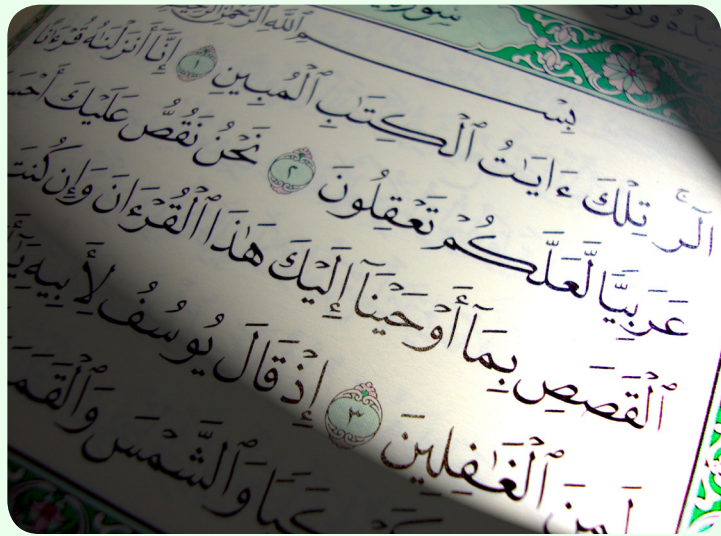 سورة
بِسْمِ ٱللَّهِ ٱلرَّحْمَٰنِ ٱلرَّحِيمِ
الٓر ۚ تِلْكَ ءَايَٰتُ ٱلْكِتَٰبِ ٱلْمُبِينِ ١ إِنَّآ أَنزَلْنَٰهُ قُرْءَٰنًا
عَرَبِيًّا لَّعَلَّكُمْ تَعْقِلُونَ ٢ نَحْنُ نَقُصُّ عَلَيْكَ
ٱلْقَصَصِ بِمَآ أَوْحَيْنَآ إِلَيْكَ هَٰذَا ٱلْقُرْءَانَ وَإِن كُنتَ
لَمِنَ ٱلْغَٰفِلِينَ ٣ إِذْ قَالَ يُوسُفُ لِأَبِيهِ
وَٱلشَّمْسَ